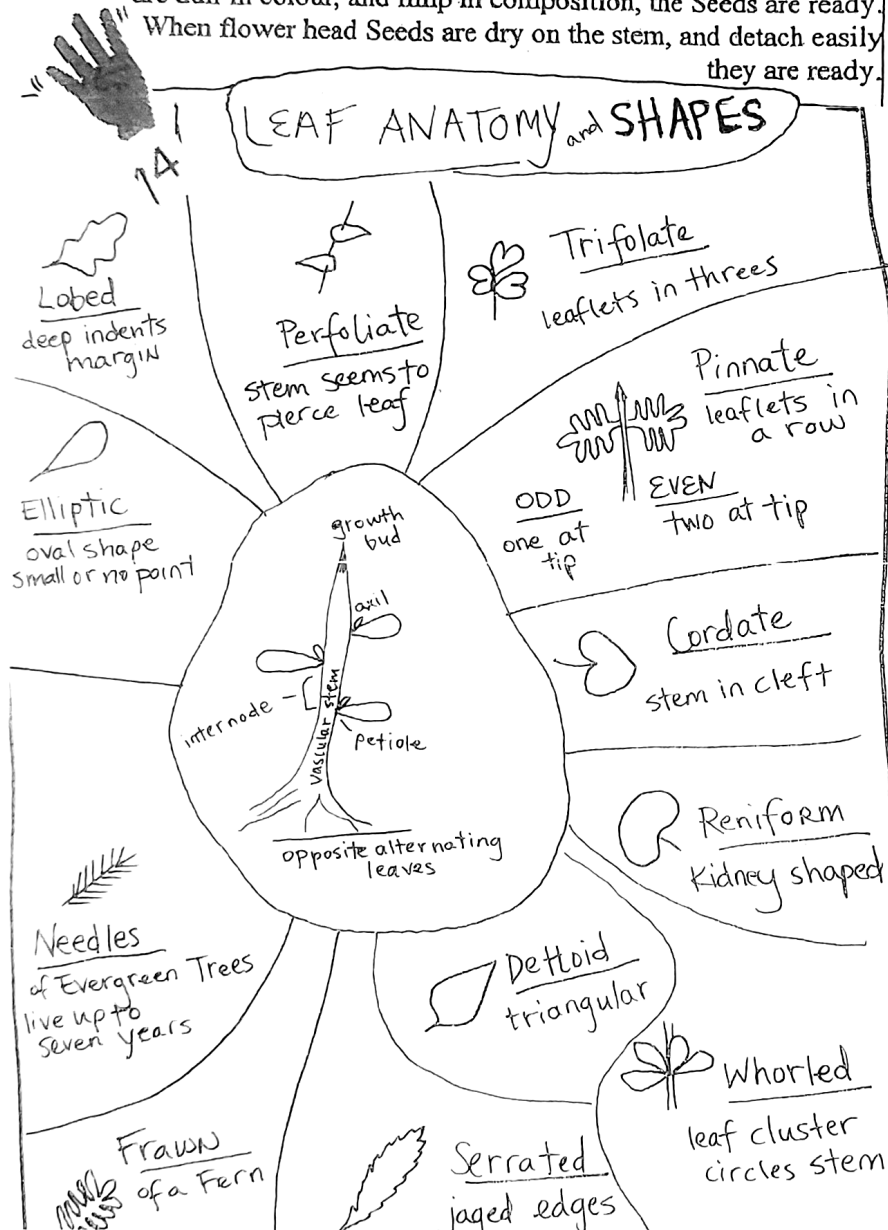 are dull in colour, and limp in composition, the Seeds are ready.
When flower head Seeds are dry on the stem, and detach easily
they are ready.
14
LEAF ANATOMY and SHAPES
Lobed
deep indents
margin
Perfoliate
stem seems to
pierce leaf
Trifolate
leaflets in threes
Pinnate
leaflets in
a row
ODD
one at
tip
EVEN
two at tip
Elliptic
oval shape
small or no point
growth
bud
axil
internode
vascular stem
Petiole
opposite alternating
leaves
Cordate
stem in cleft
Reniform
Kidney shaped
Needles
of Evergreen Trees
live up to
seven years
Deltoid
triangular
Whorled
leaf cluster
circles stem
Frawn
of a Fern
Serrated
jaged edges